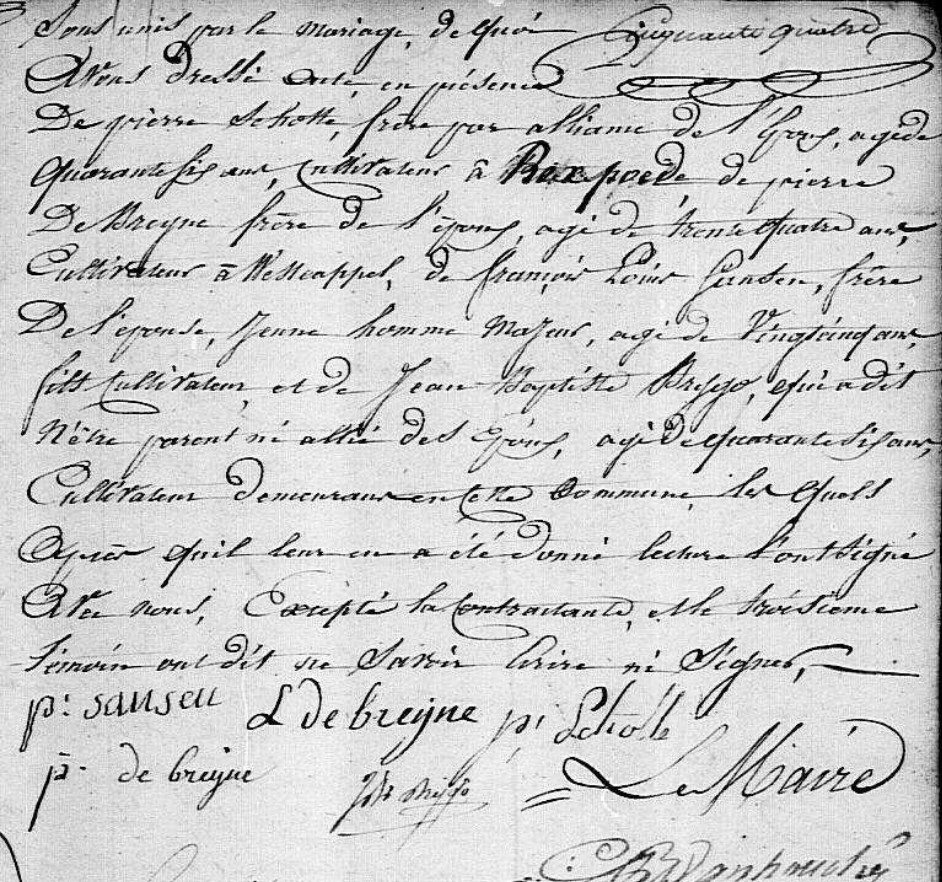 Sont unis par le mariage, de quoi Cinquante quatre
Avons dressé acte, en présence
De pierre Schotte, frère par alliance de l'Epoux, agé de
quarante six ans, Cultivateur à Rexpoëde, de pierre
De Breyne frère de l'époux, agé de trente quatre ans,
Cultivateur à Westcappel, de françois Louis Sansen, frère
De l'épouse, Jeune homme Majeur, agé de Vingt cinq ans,
fils Cultivateur, et de Jean Baptiste, qui a dit
N'être parent ni allié des Epoux, agé de quarante six ans,
Cultivateur demeurans en Cette Commune, les quels
Après qu'il leur en a été donné lecture l'ont Signé
Avec nous, Excepté la Contractante, et le troisieme
témoin ont dit ne Savoir Ecrire ni Signer,
p: sansen L de breyne p: Schotte
p. de breyne Le Maire